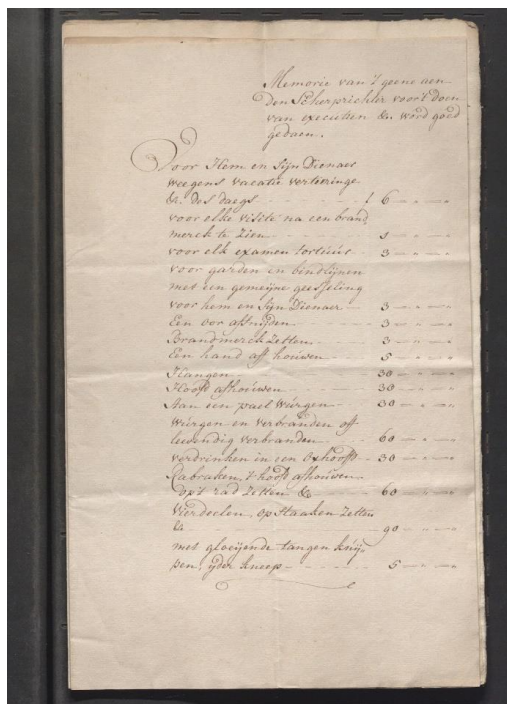 Memorie van 't geene aen
den Scherprichter voor't doen
van executien &c. word goed
gedaen.
Voor Hem en Sijn Dienaer
weegens vacatie verteeringe
&c. des daegs - - - - - ƒ 6 - " - "
voor elke visite na een brand
merck te zien - - - - - 3 - " - "
voor elk examen tortuur - 3 - " - "
voor garden en bindlijnen
met een gemeijne geesseling
voor hem en Sijn Dienaer - 3 - " - "
Een oor afsnijden - - - - - 3 - " - "
Brandmerck Zetten - - - - 3 - " - "
Een hand aff houwen - - - 5 - " - "
Hangen - - - - - 30 - " - "
Hooft afhouwen - - - - - 30 - " - "
Aan een pael wurgen - - - 30 - " - "
Wurgen en verbranden off
leevendig verbranden - - - 60 - " - "
verdrinken in een Oxhooft - 30 - " - "
Rabraken, 't hooft afhouwen
op't rad Zetten &c - - - - 60 - " - "
Vierdeelen, op Staaken Zetten
&c - - - - - 90 - " - "
met gloeijende tangen knij-
pen, ijder kneep - - - - - 5 - " - "